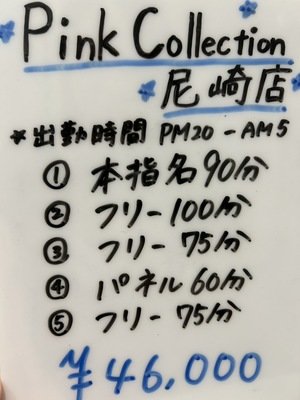 Pink Collection
尼崎店
*出勤時間 PM20-AM5
① 本指名90分
② フリー100分
③ フリー75分
④ パネル60分
⑤ フリー75分
¥46,000